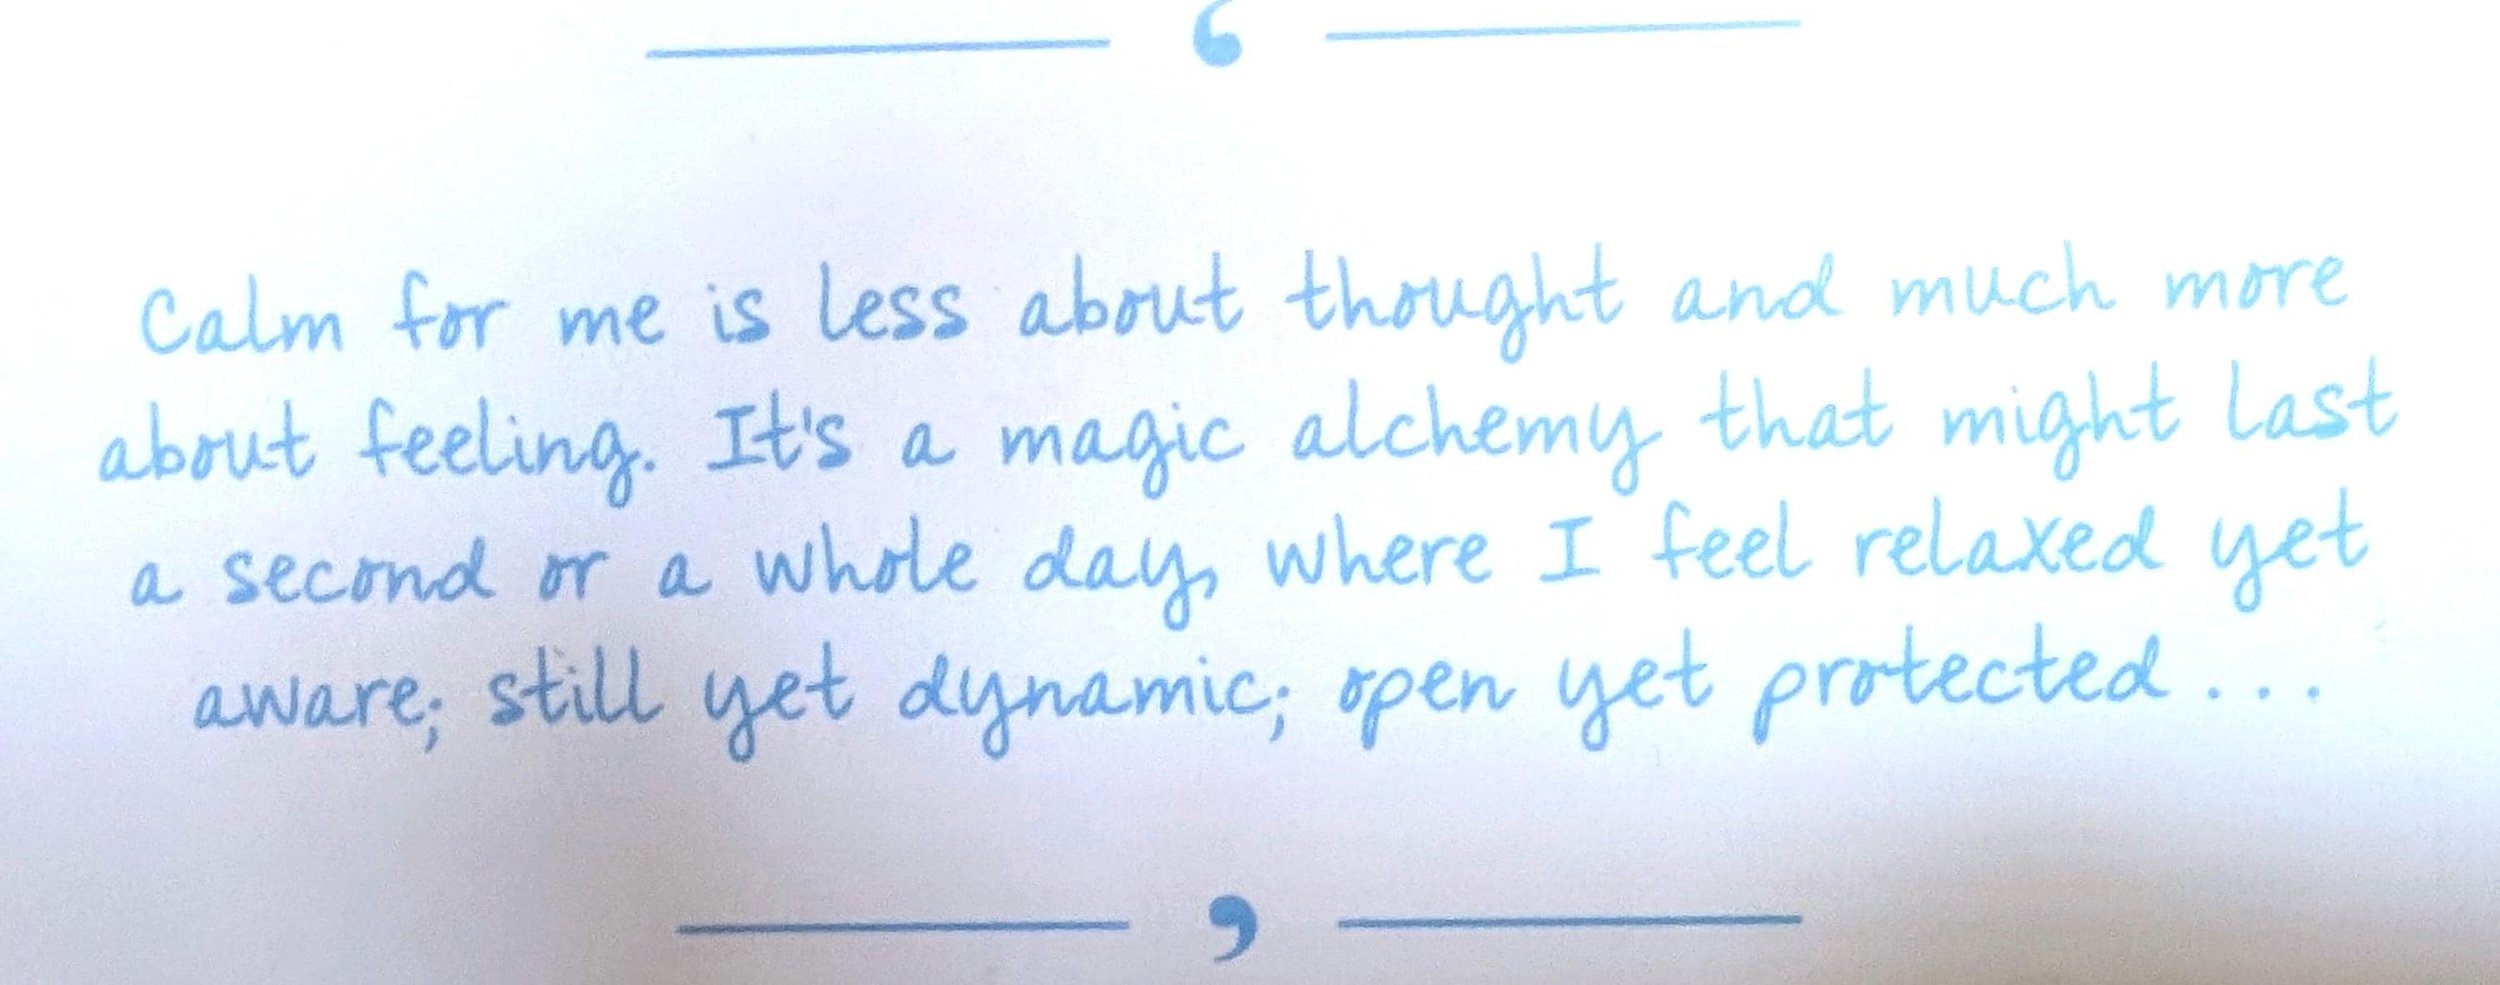 ‘
Calm for me is less about thought and much more
about feeling. It's a magic alchemy that might last
a second or a whole day, where I feel relaxed yet
aware; still yet dynamic; open yet protected...
’